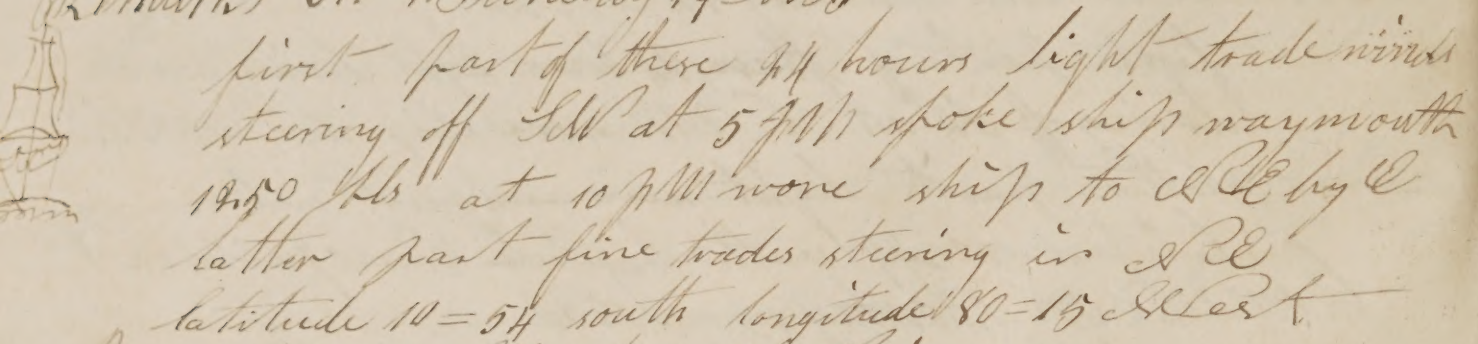 Remarks on
first part of these 24 hours light trade winds
steering off SW at 5 PM spoke ship waymouth
1250 bls at 10 pM wore ship to NE by E
latter part fine trades steering in NE
latitude 10=54 south longitude 80=15 West